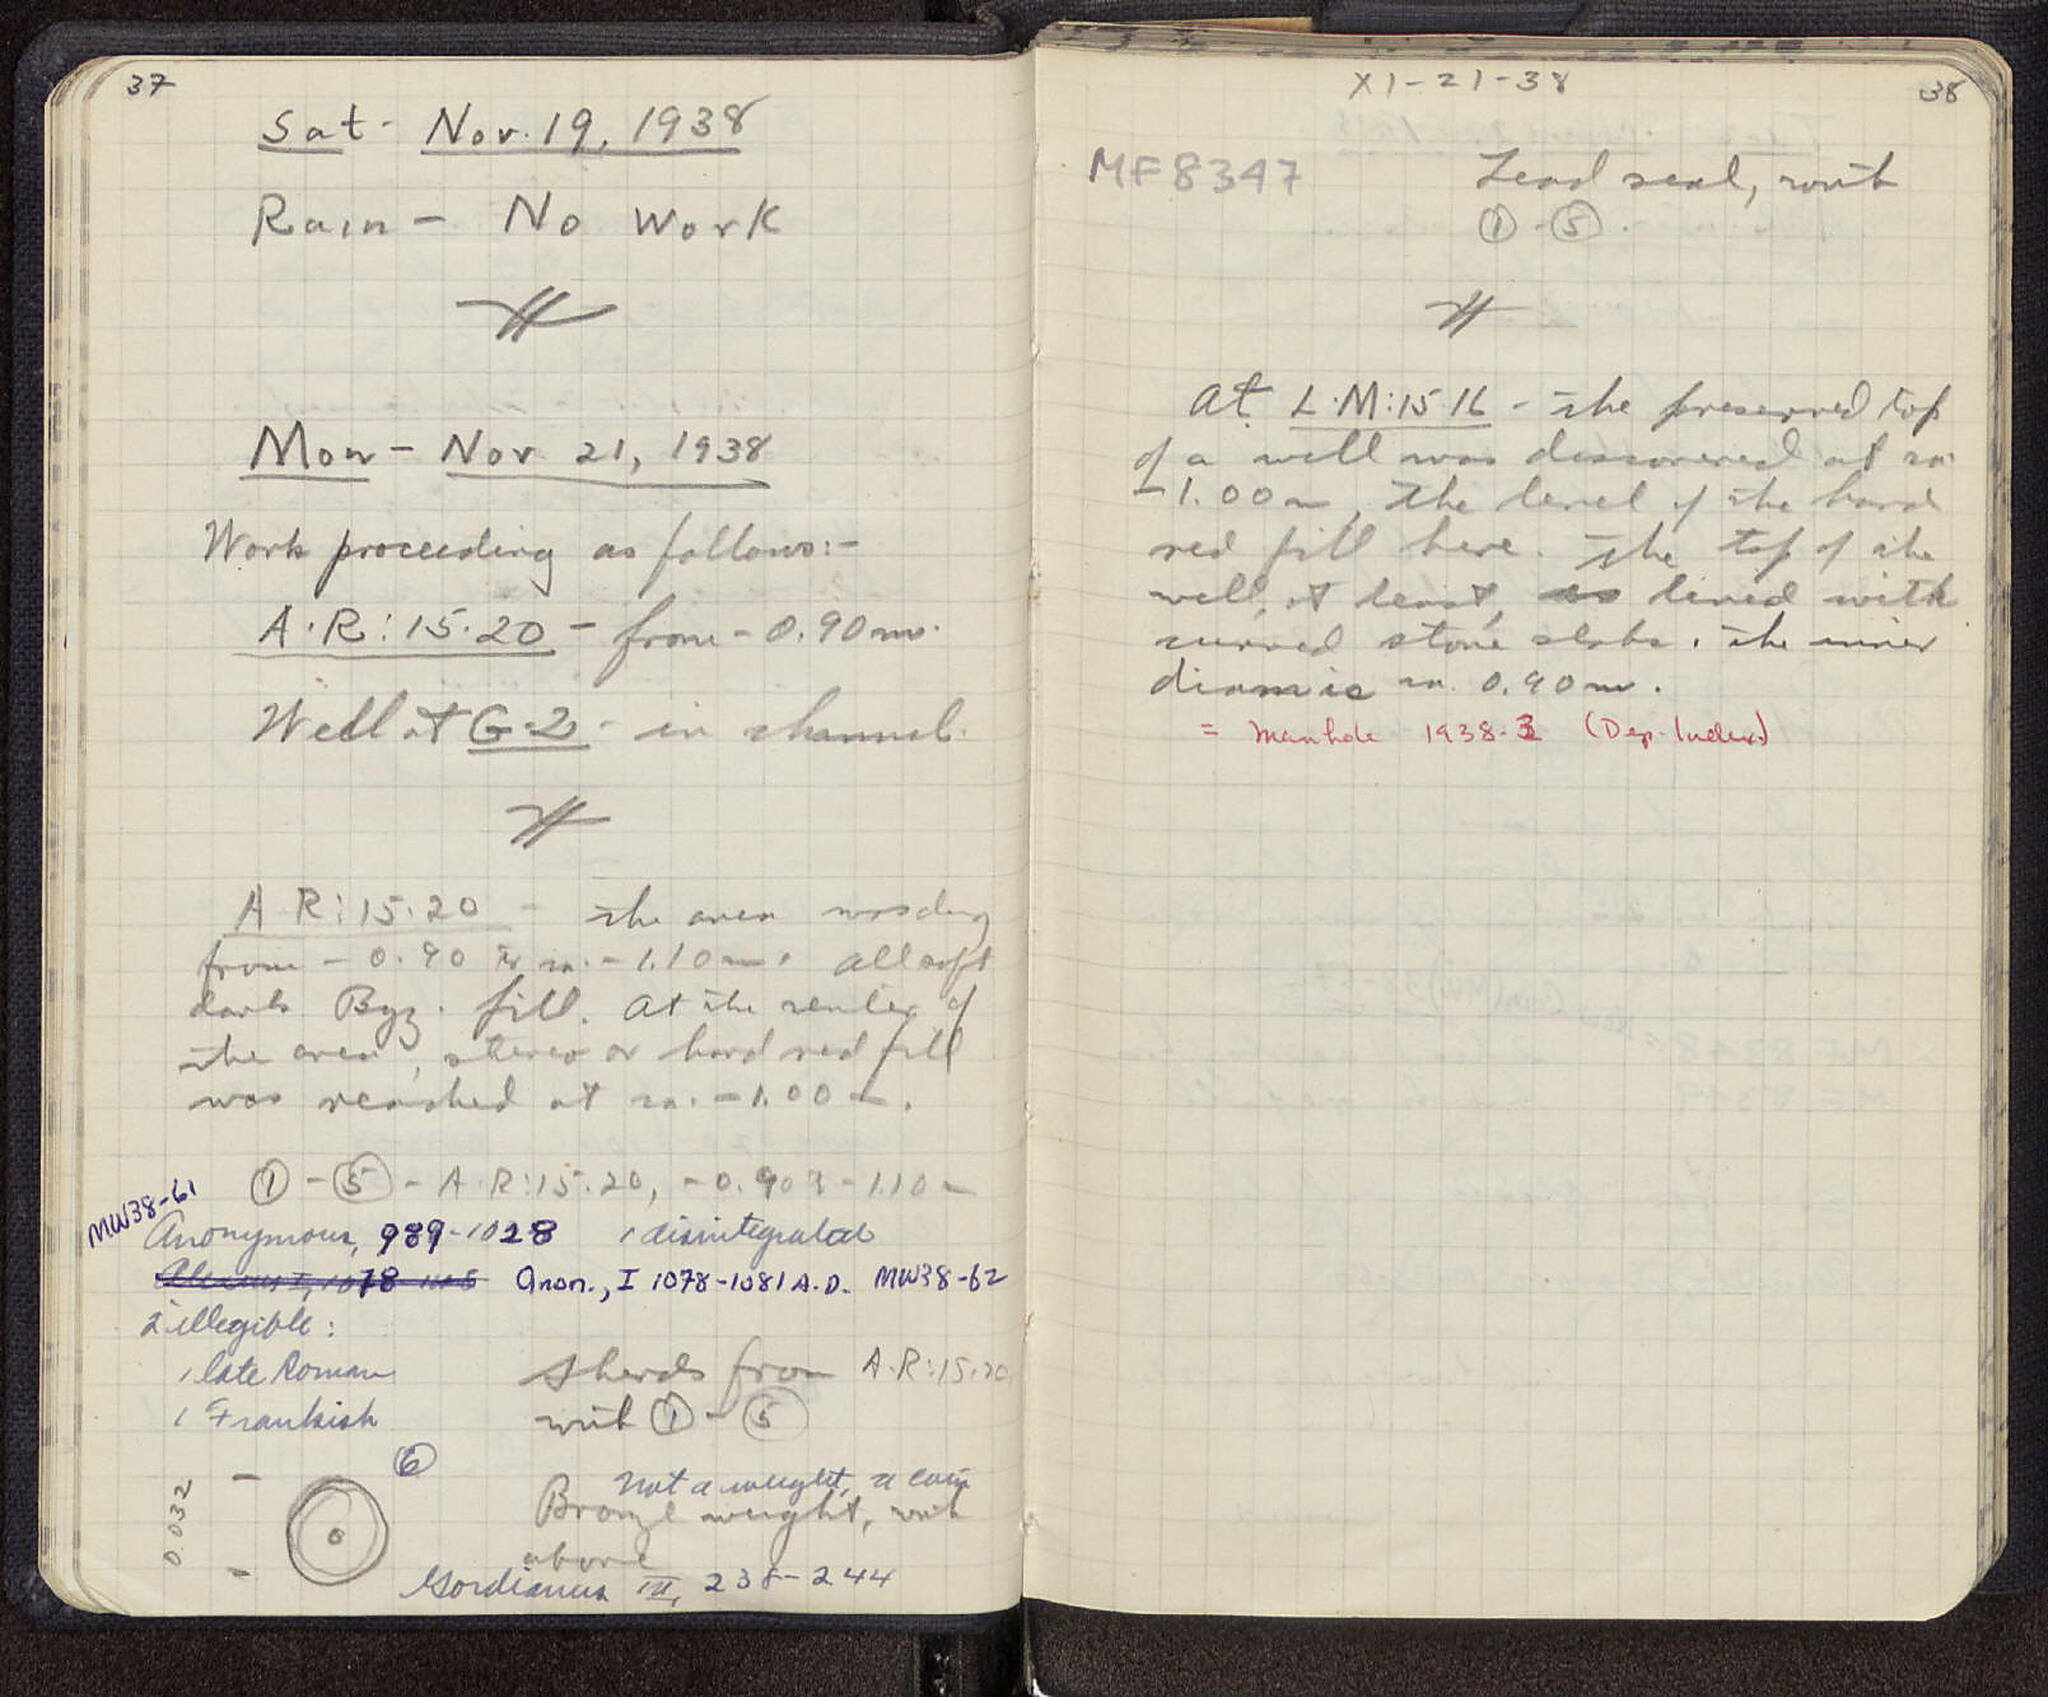 37
Sat - Nov. 19, 1938
Rain - No Work
Mon - Nov 21, 1938
Work proceeding as follows:-
A·R:15·20 - from - 0.90 m.
Well at G-2 - in channel.
A·R:15·20 - the area was dug
from - 0.90 to ca. - 1.10 m. All soft
dark Byz. fill. At the center of
the area, stereo or hard red fill
was reached at ca. - 1.00 m.
① - ⑤ - A·R:15·20, - 0.90 - 1.10 m
MW38-61
Anonymous, 989-1028 1 disintegrated
Anon., I 1078-1081 A.D. MW38-62
2 illegible:
1 late Roman
1 Frankish
Sherds from A·R:15·20
with ① - ⑤
⑥
0.032
Not a weight, a coin
Bronze weight, with
above
Gordianus III, 238-244
XI-21-38
38
MF8347
Lead seal, with
① - ⑤.
At L·M:15·16 - the preserved top
of a well was discovered at ca.
- 1.00 m, the level of the hard
red fill here. The top of the
well, at least, is lined with
curved stone slabs. The inner
diam is ca. 0.90 m.
= Manhole 1938-3 (Dep. Index)